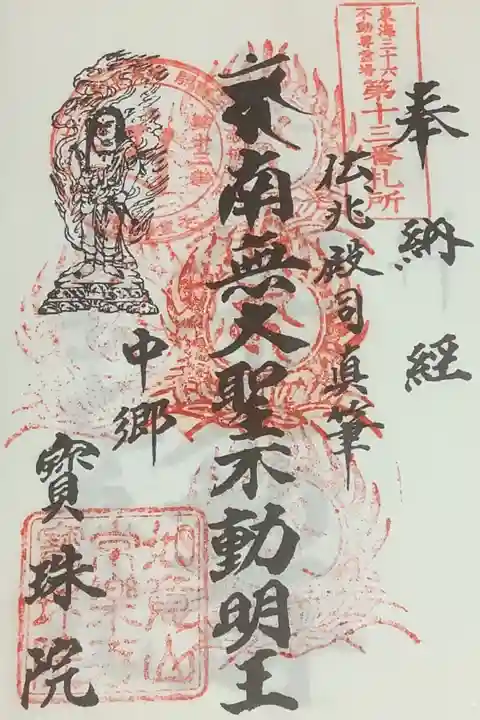 東海三十六
不動尊霊場
第十三番札所
奉納経
仏兆殿司真筆
南無大聖不動明王
中郷
寳珠院